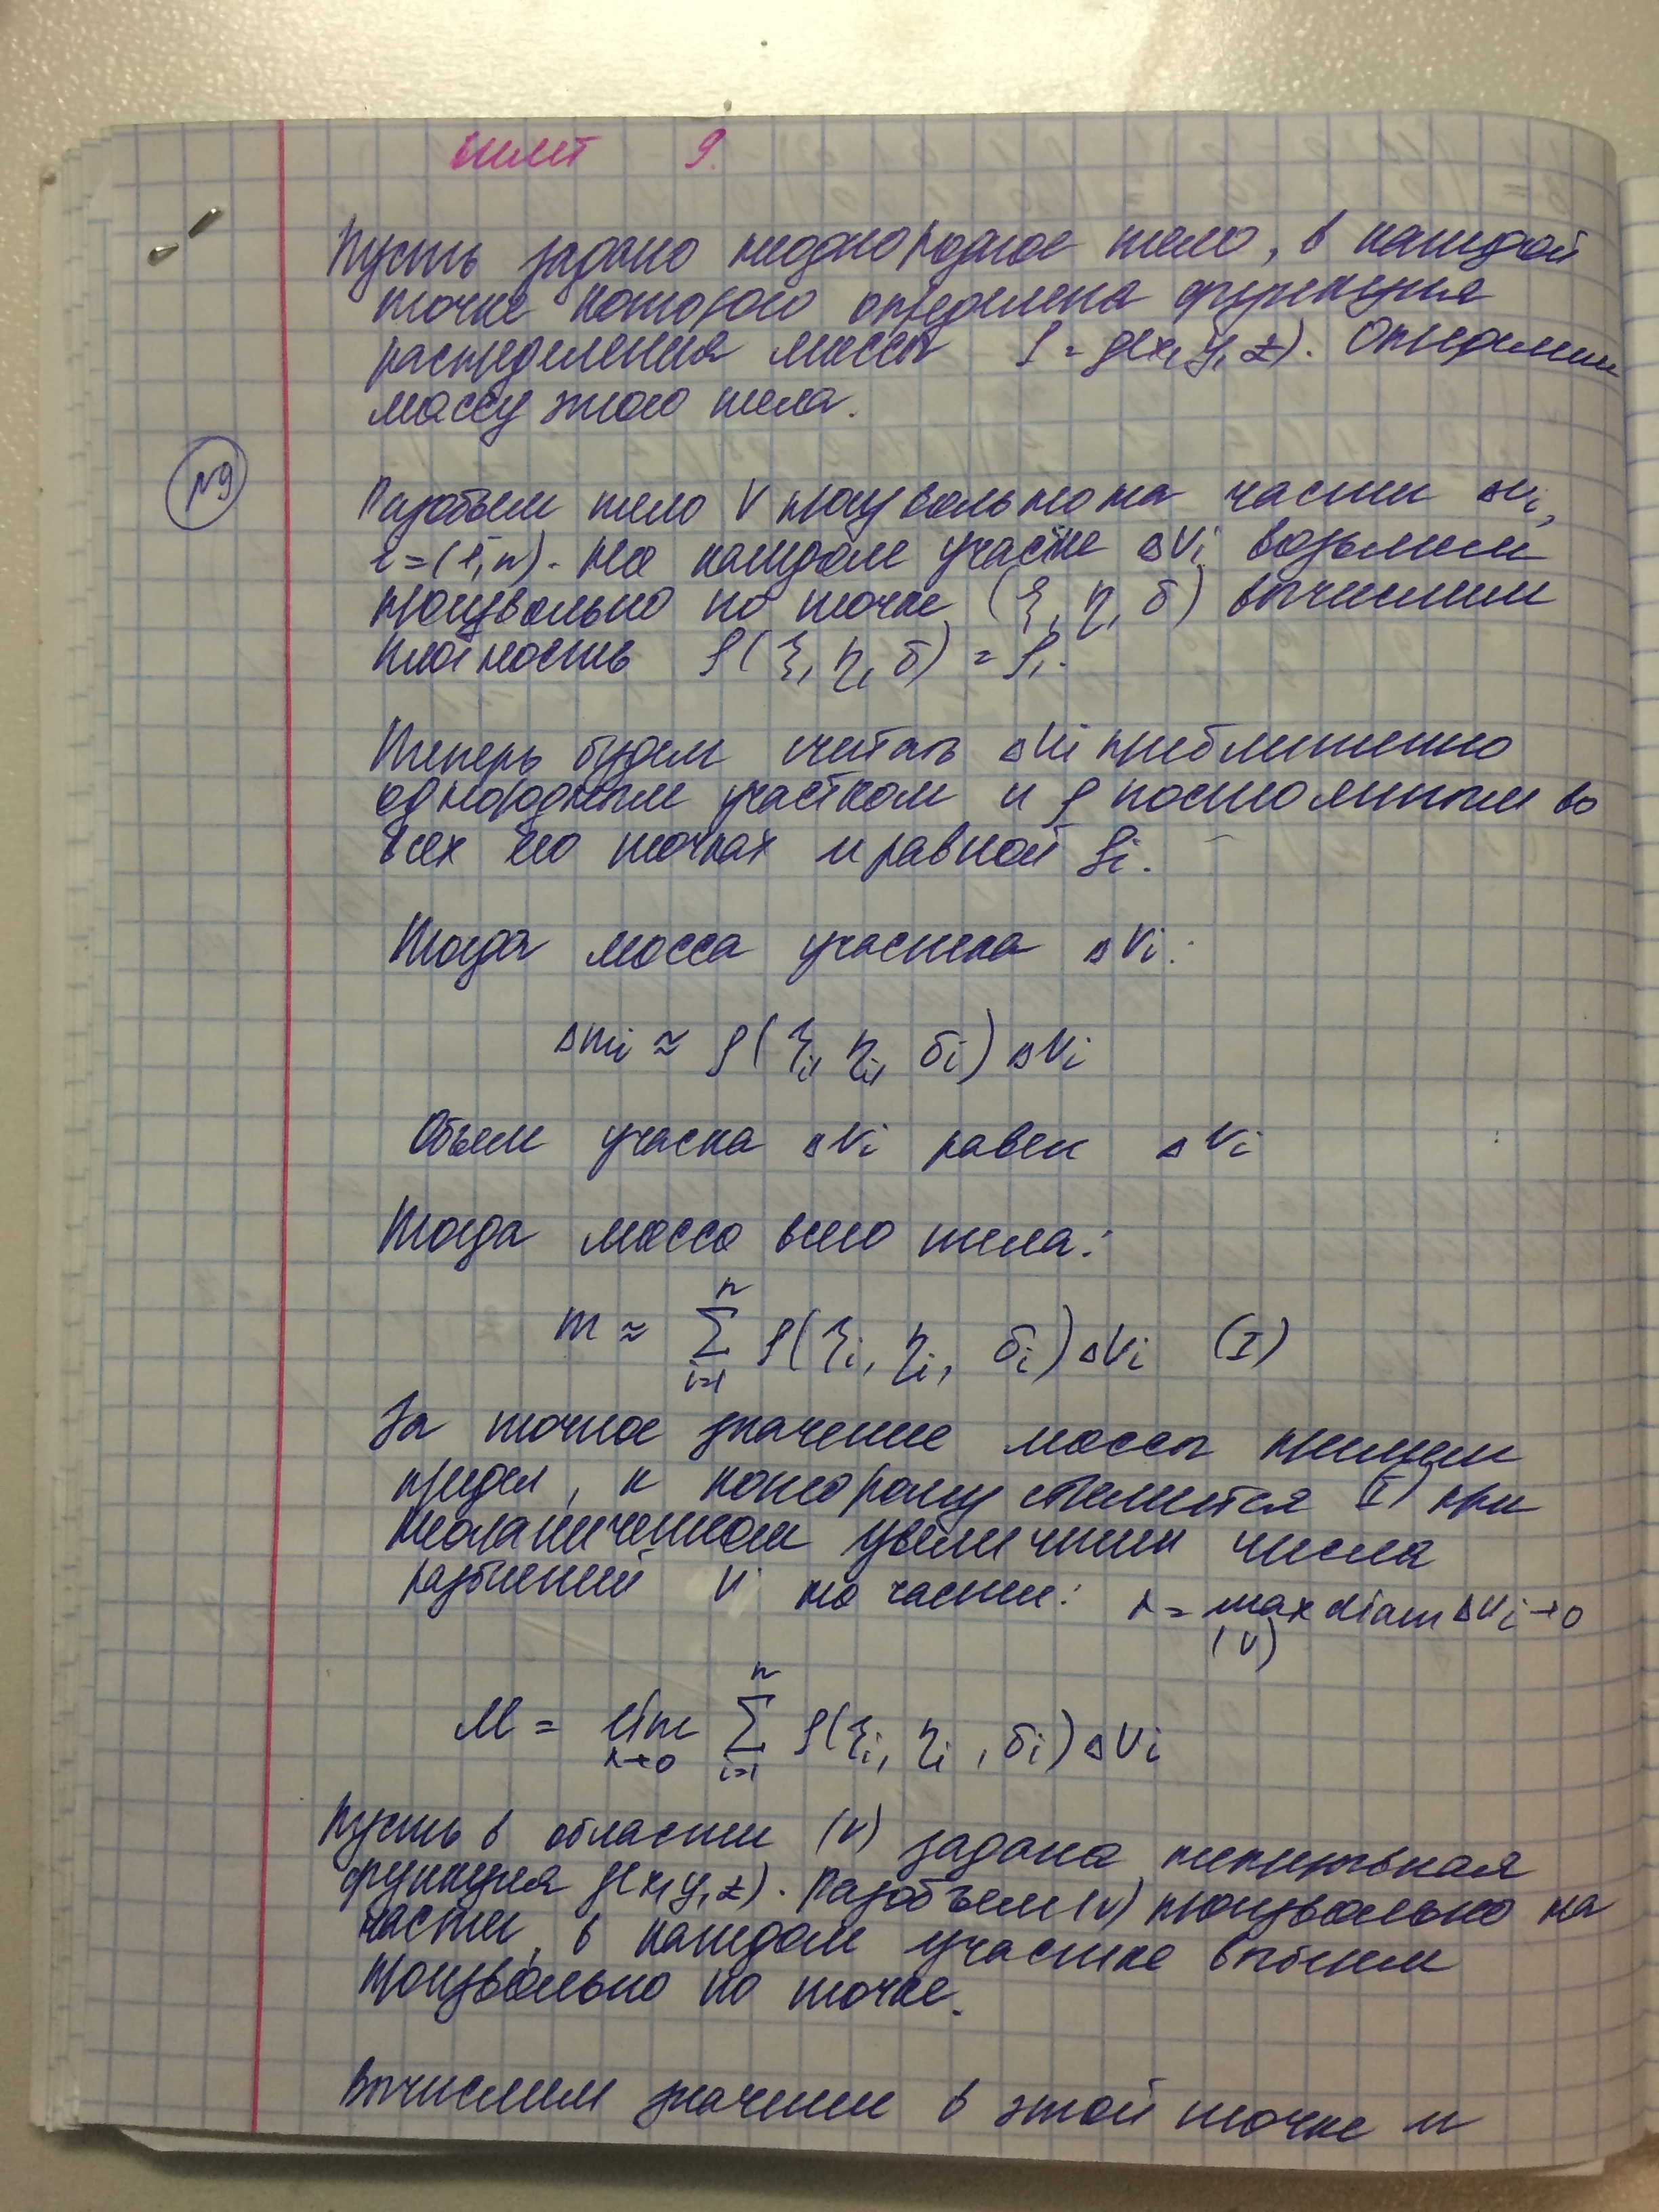 билет 9.
Пусть задано неоднородное тело, в каждой
точке которого определена функция
распределения массы ρ = ρ(x, y, z). Определим
массу этого тела.
№9
Разобьем тело V произвольно на части ΔVi,
i=(1,n). На каждом участке ΔVi возьмем
произвольно по точке (ξ, η, δ) вычислим
плотность ρ(ξ, η, δ) = ρi.
Теперь будем считать ΔVi приближенно
однородным участком и ρ постоянным во
всех его точках и равной ρi.
Тогда масса участка ΔVi:
Δmi ≈ ρ(ξi, ηi, δi) ΔVi
Объем учаска ΔVi равен ΔVi
Тогда масса всего тела:
m ≈ n∑i=1 ρ(ξi, ηi, δi) ΔVi (I)
За точное значение массы примем
предел, к которому стремится (I) при
неограниченном увеличении числа
разбиений V на части: λ = max(V) diam ΔVi→0
M = lim λ→0 n∑i=1 ρ(ξi, ηi, δi) ΔVi
Пусть в области (V) задана непрерывная
функция ρ(x, y, z). Разобьем (V) произвольно на
части, в каждом участке выберем
произвольно по точке.
Вычислим значение в этой точке и